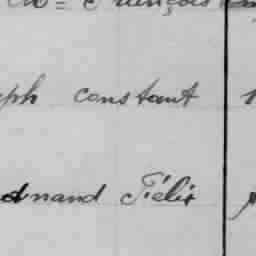 François
ph constant
dnand Félix